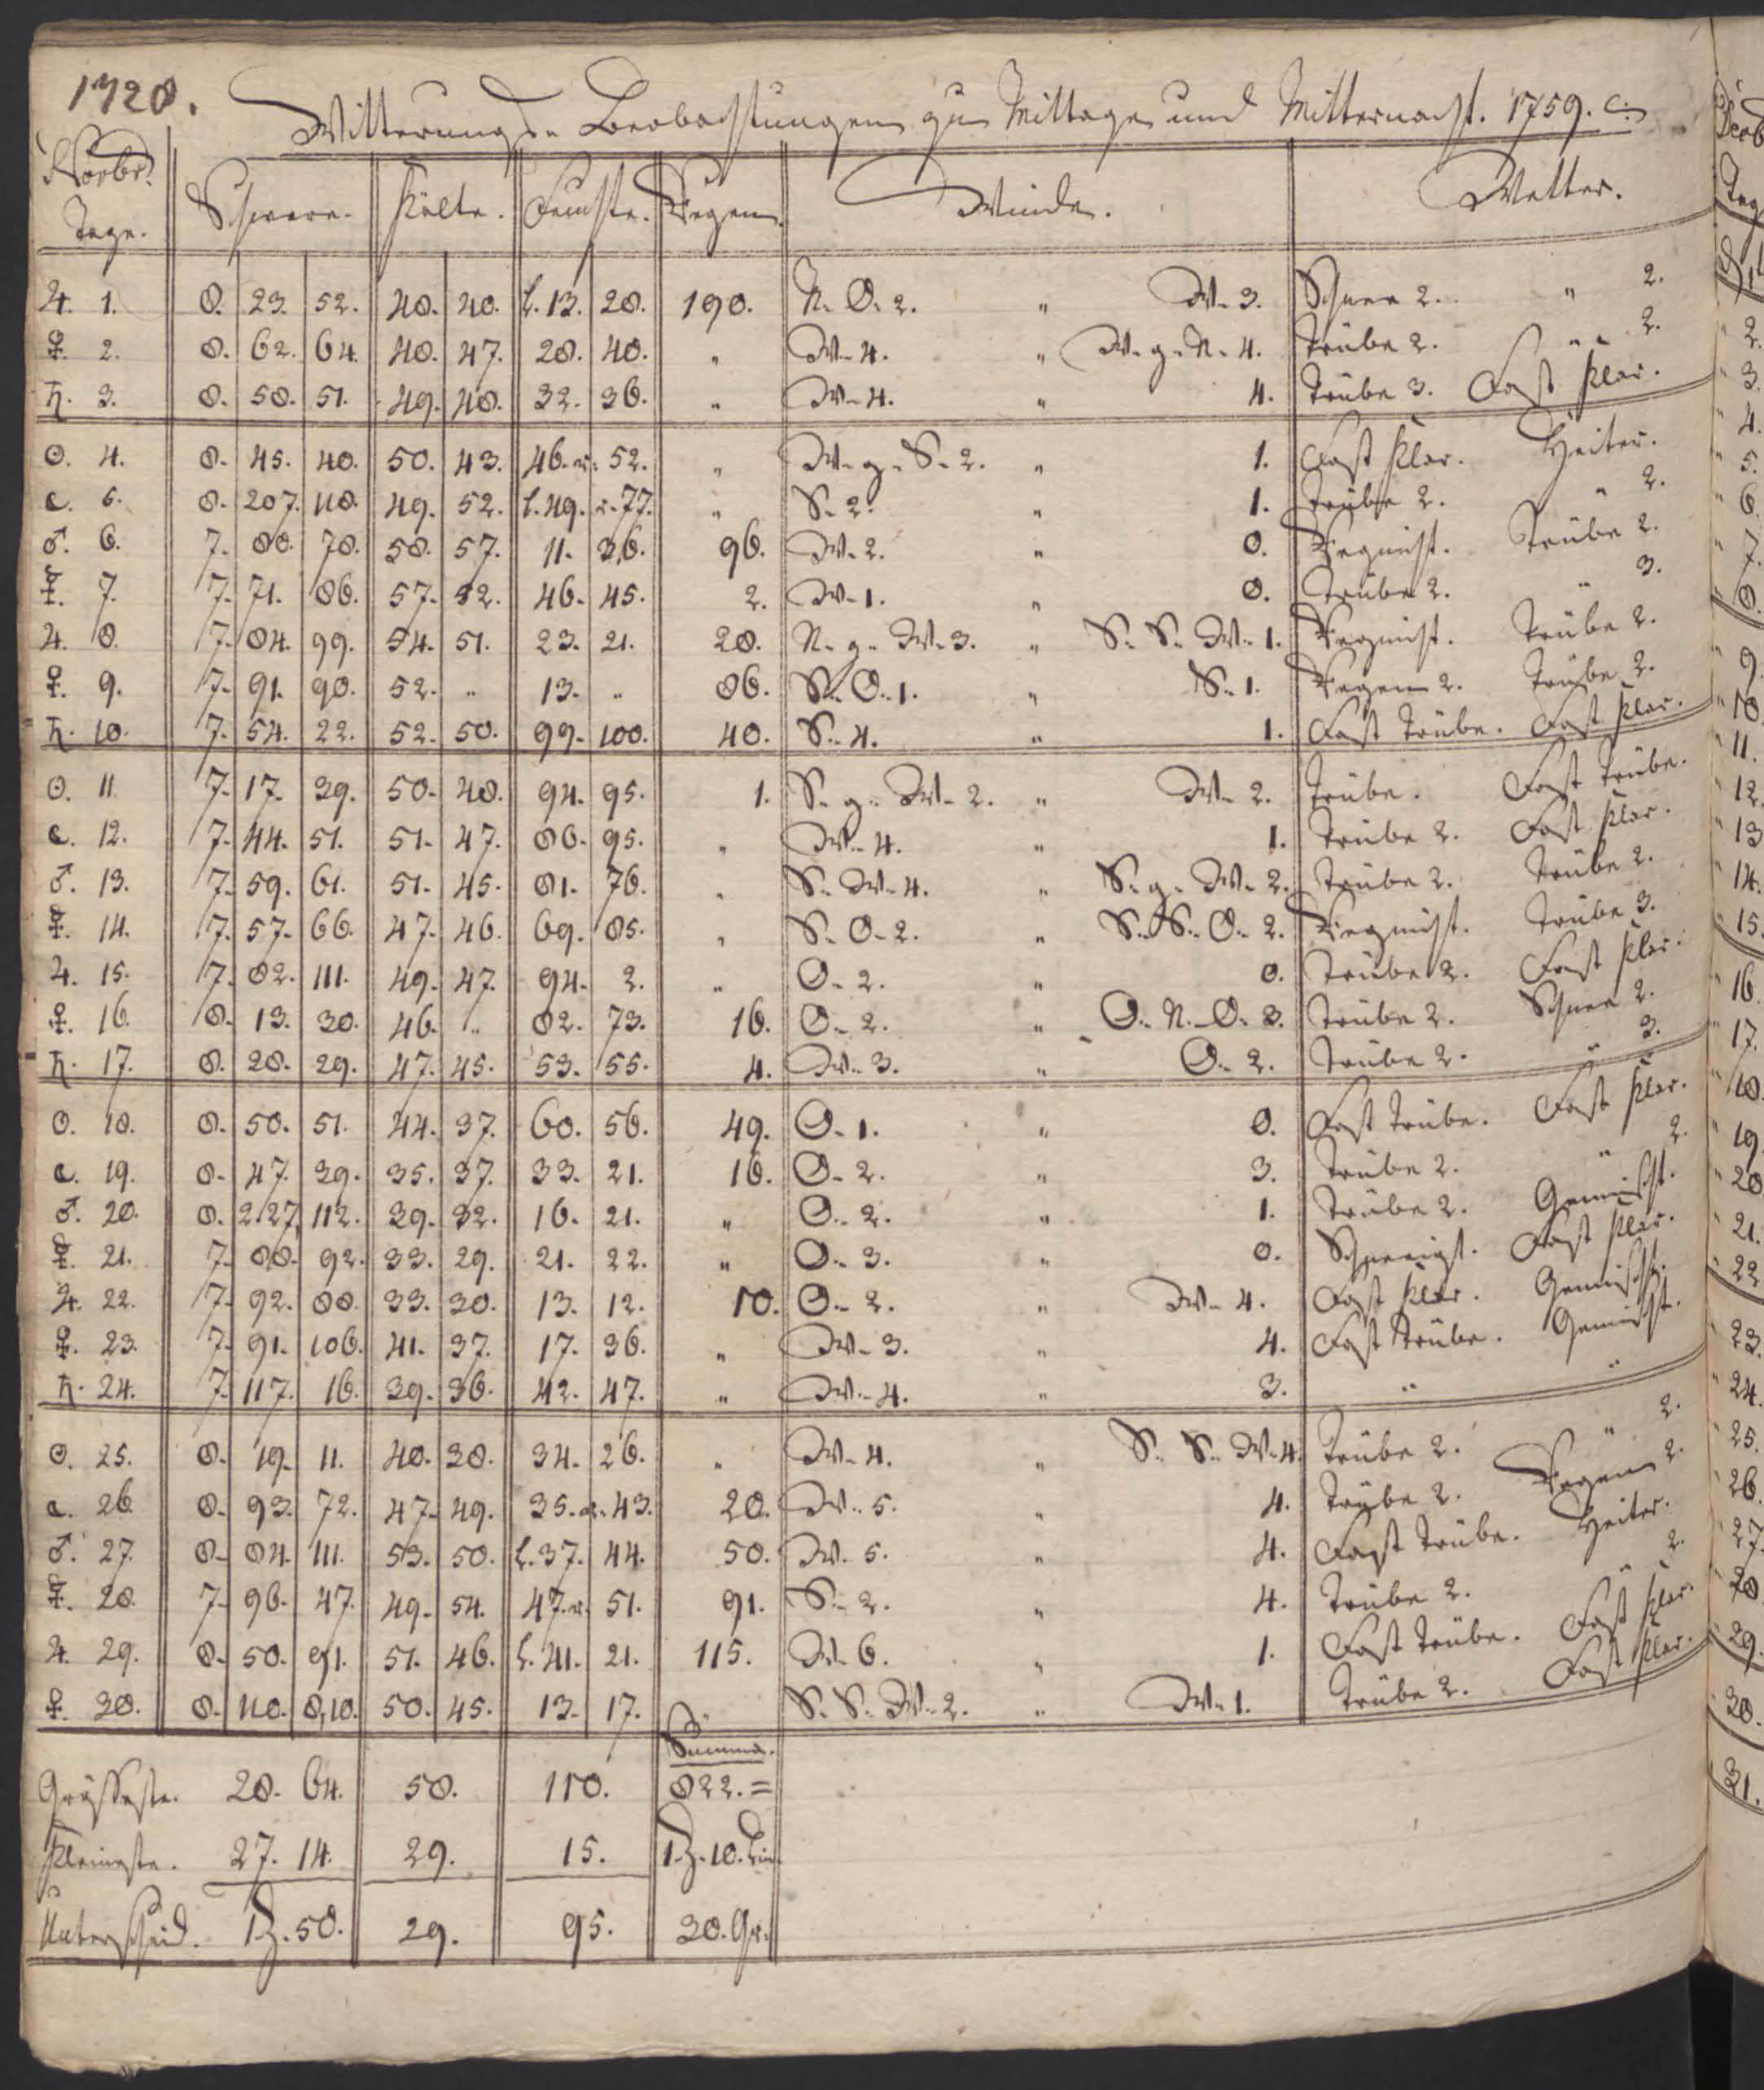 1728.
Witterungs-Beobachtungen zu Mittage und Mitternacht. 1759. C.
Novbr. Tage. Schwere. Kälte. Feuchte. Regen. Winde. Wetter.
♃. 1. 8. 23. 52. 48. 40. l. 13. 28. 190. N. O. 2. " W. 3. Schnee 2. " 2.
♀. 2. 8. 62. 64. 48. 47. 28. 40. " W. 4. " W. g. N. 4. Trübe 2. " 2.
♄. 3. 8. 58. 51. 49. 48. 32. 36. " W. 4. " 4. Trübe 3. Fast klar.
☉. 4. 8. 45. 40. 50. 43. 46. r. 52. " W. g. S. 2. " 1. Fast klar. Heiter.
☾. 5. 8. 207. 118. 49. 52. l. 49. r. 77. " S. 2. " 1. Trübe 2. " 2.
♂. 6. 7. 88. 78. 58. 57. 11. 36. 96. W. 2. " 0. Regnicht. Trübe 2.
☿. 7. 7. 71. 86. 57. 52. 46. 45. 2. W. 1. " 0. Trübe 2. " 3.
♃. 8. 7. 84. 99. 54. 51. 23. 21. 28. N. g. W. 3. " S. S. W. 1. Regnicht. Trübe 2.
♀. 9. 7. 91. 90. 52. " 13. " 86. S. O. 1. " S. 1. Regen 2. Trübe 2.
♄. 10. 7. 54. 22. 52. 50. 99. 100. 40. S. 4. " 1. Fast trübe. Fast klar.
☉. 11. 7. 17. 39. 50. 48. 94. 95. 1. S. g. W. 2. " W. 2. Trübe. Fast trübe.
☾. 12. 7. 44. 51. 51. 47. 86. 95. " W. 4. " 1. Trübe 2. Fast klar.
♂. 13. 7. 59. 61. 51. 45. 81. 76. " S. W. 4. " S. g. W. 2. Trübe 2. Trübe 2.
☿. 14. 7. 57. 66. 47. 46. 69. 85. " S. O. 2. " S. S. O. 2. Regnicht. Trübe 3.
♃. 15. 7. 82. 111. 49. 47. 94. 2. " O. 2. " 0. Trübe 2. Fast klar.
♀. 16. 8. 13. 30. 46. " 82. 73. 16. O. 2. " O. N. O. 3. Trübe 2. Schnee 2.
♄. 17. 8. 28. 29. 47. 45. 53. 55. 4. W. 3. " O. 2. Trübe 2. " 3.
☉. 18. 8. 50. 51. 44. 37. 60. 56. 49. O. 1. " 0. Fast trübe. Fast klar.
☾. 19. 8. 47. 39. 35. 37. 33. 21. 16. O. 2. " 3. Trübe 2. " 2.
♂. 20. 8. 2. 27. 112. 39. 32. 16. 21. " O. 2. " 1. Trübe 2. Gemischt.
☿. 21. 7. 88. 92. 33. 29. 21. 22. " O. 3. " 0. Schneeigt. Fast klar.
♃. 22. 7. 92. 88. 33. 30. 13. 12. 10. O. 2. " W. 4. Fast klar. Gemischt.
♀. 23. 7. 91. 106. 41. 37. 17. 36. " W. 3. " 4. Fast trübe. Gemischt.
♄. 24. 7. 117. 16. 39. 36. 42. 47. " W. 4. " 3. " "
☉. 25. 8. 19. 11. 40. 38. 34. 26. " W. 4. " S. S. W. 4. Trübe 2. " 2.
☾. 26. 8. 93. 72. 47. 49. 35. r. 43. 20. W. 5. " 4. Trübe 2. Regen 2.
♂. 27. 8. 84. 111. 53. 50. l. 37. 44. 50. W. 5. " 4. Fast trübe. Heiter.
☿. 28. 7. 96. 47. 49. 54. 47. r. 51. 91. S. 2. " 4. Trübe 2. " 2.
♃. 29. 8. 50. 91. 51. 46. l. 41. 21. 115. W. 6. " 1. Fast trübe. Fast klar.
♀. 30. 8. 110. 8,10. 50. 45. 13. 17. " S. S. W. 2. " W. 1. Trübe 2. Fast klar.
Summa.
Grösseste. 28. 64. 58. 110. 822. =
Kleinste. 27. 14. 29. 15. 1. Z. 10. Lin.
Unterscheid. 1 Z. 50. 29. 95. 30. Gr.